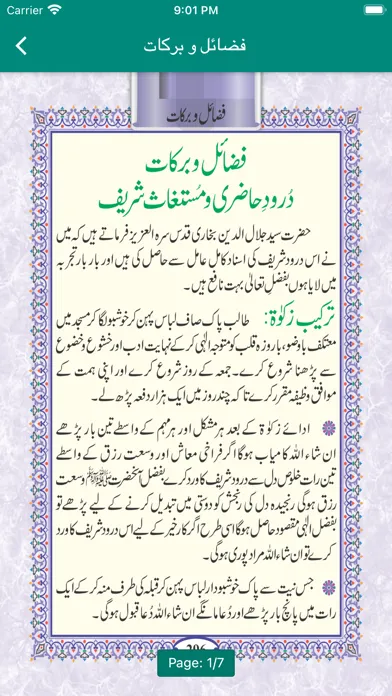 Carrier 9:01 PM
فضائل و برکات
فضائل و برکات
فضائل و برکات
دُرودِ حاضری و مُستغاث شریف
حضرت سید جلال الدین بخاری قدس سرہ العزیز فرماتے ہیں کہ میں
نے اس درود شریف کی اسناد کامل عامل سے حاصل کی ہیں اور بار بار تجربہ
میں لایا ہوں بفضلِ تعالیٰ بہت نافع ہیں۔
ترکیب زکوٰۃ: طالب پاک صاف لباس پہن کر خوشبو لگا کر مسجد میں
معتکف باوضو، باروزہ قلب کو متوجہ الٰہی کر کے نہایت ادب اور خشوع و خضوع
سے پڑھنا شروع کرے۔ جمعہ کے روز شروع کرے اور اپنی ہمت کے
موافق وظیفہ مقرر کرے تا کہ چند روز میں ایک ہزار دفعہ پڑھ لے۔
ادائے زکوٰۃ کے بعد ہر مشکل اور ہر مہم کے واسطے تین بار پڑھے
ان شاء اللہ کامیاب ہوگا اگر فراخی معاش اور وسعت رزق کے واسطے
تین رات خلوص دل سے درود شریف کا ورد کرے بفضل آنحضرت ﷺ وسعت
رزق ہوگی رنجیدہ دل کی رنجش کو دوستی میں تبدیل کرنے کے لیے پڑھے تو
بفضل الٰہی مقصود حاصل ہوگا اسی طرح اگر کارخیر کے لیے اس درود شریف کا ورد
کرے تو ان شاء اللہ مراد پوری ہوگی۔
جس نیت سے پاک خوشبودار لباس پہن کر قبلہ کی طرف منہ کر کے ایک
رات میں پانچ بار پڑھے اور دُعا مانگے ان شاء اللہ دُعا قبول ہوگی۔
Page: 1/7